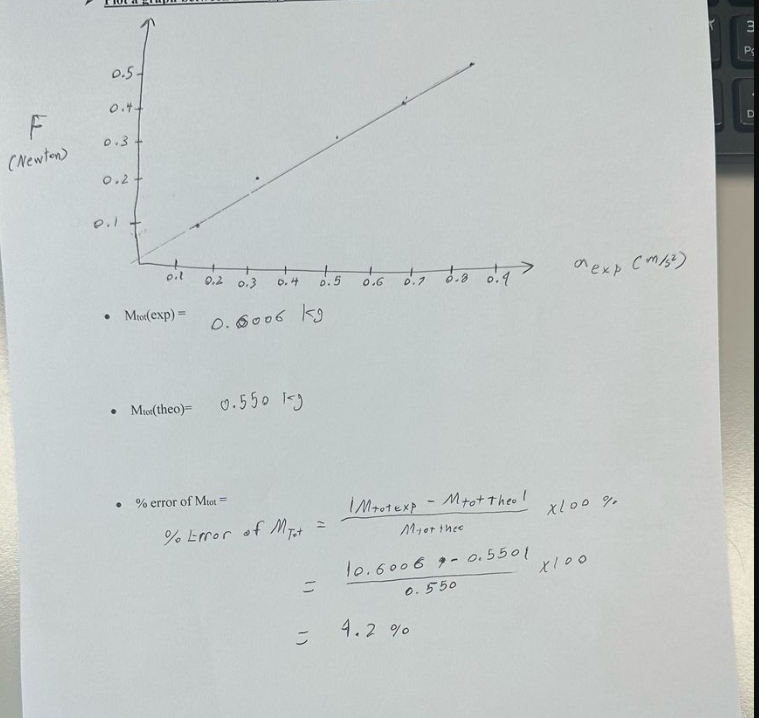 Plot a graph between
0.5
0.4
F
0.3
(Newton)
0.2
0.1
0.1 0.2 0.3 0.4 0.5 0.6 0.7 0.8 0.9
a exp (m/s²)
• Mtot(exp) = 0.6006 kg
• Mtot(theo)= 0.550 kg
• % error of Mtot =
% Error of MTot = |Mtotexp - Mtot Theo| / Mtot theo ×100 %
= |0.6006 - 0.550| / 0.550 ×100
= 9.2 %